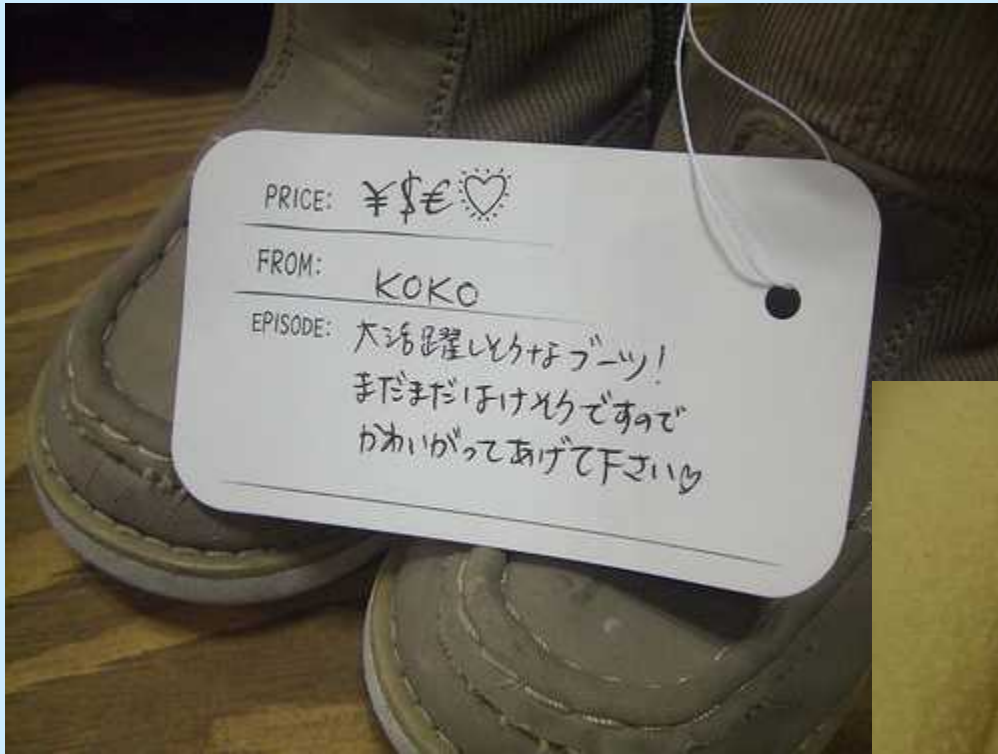 PRICE: ¥$€♡
FROM: KOKO
EPISODE: 大活躍しそうなブーツ!
まだまだはけそうですので
かわいがってあげて下さい♡